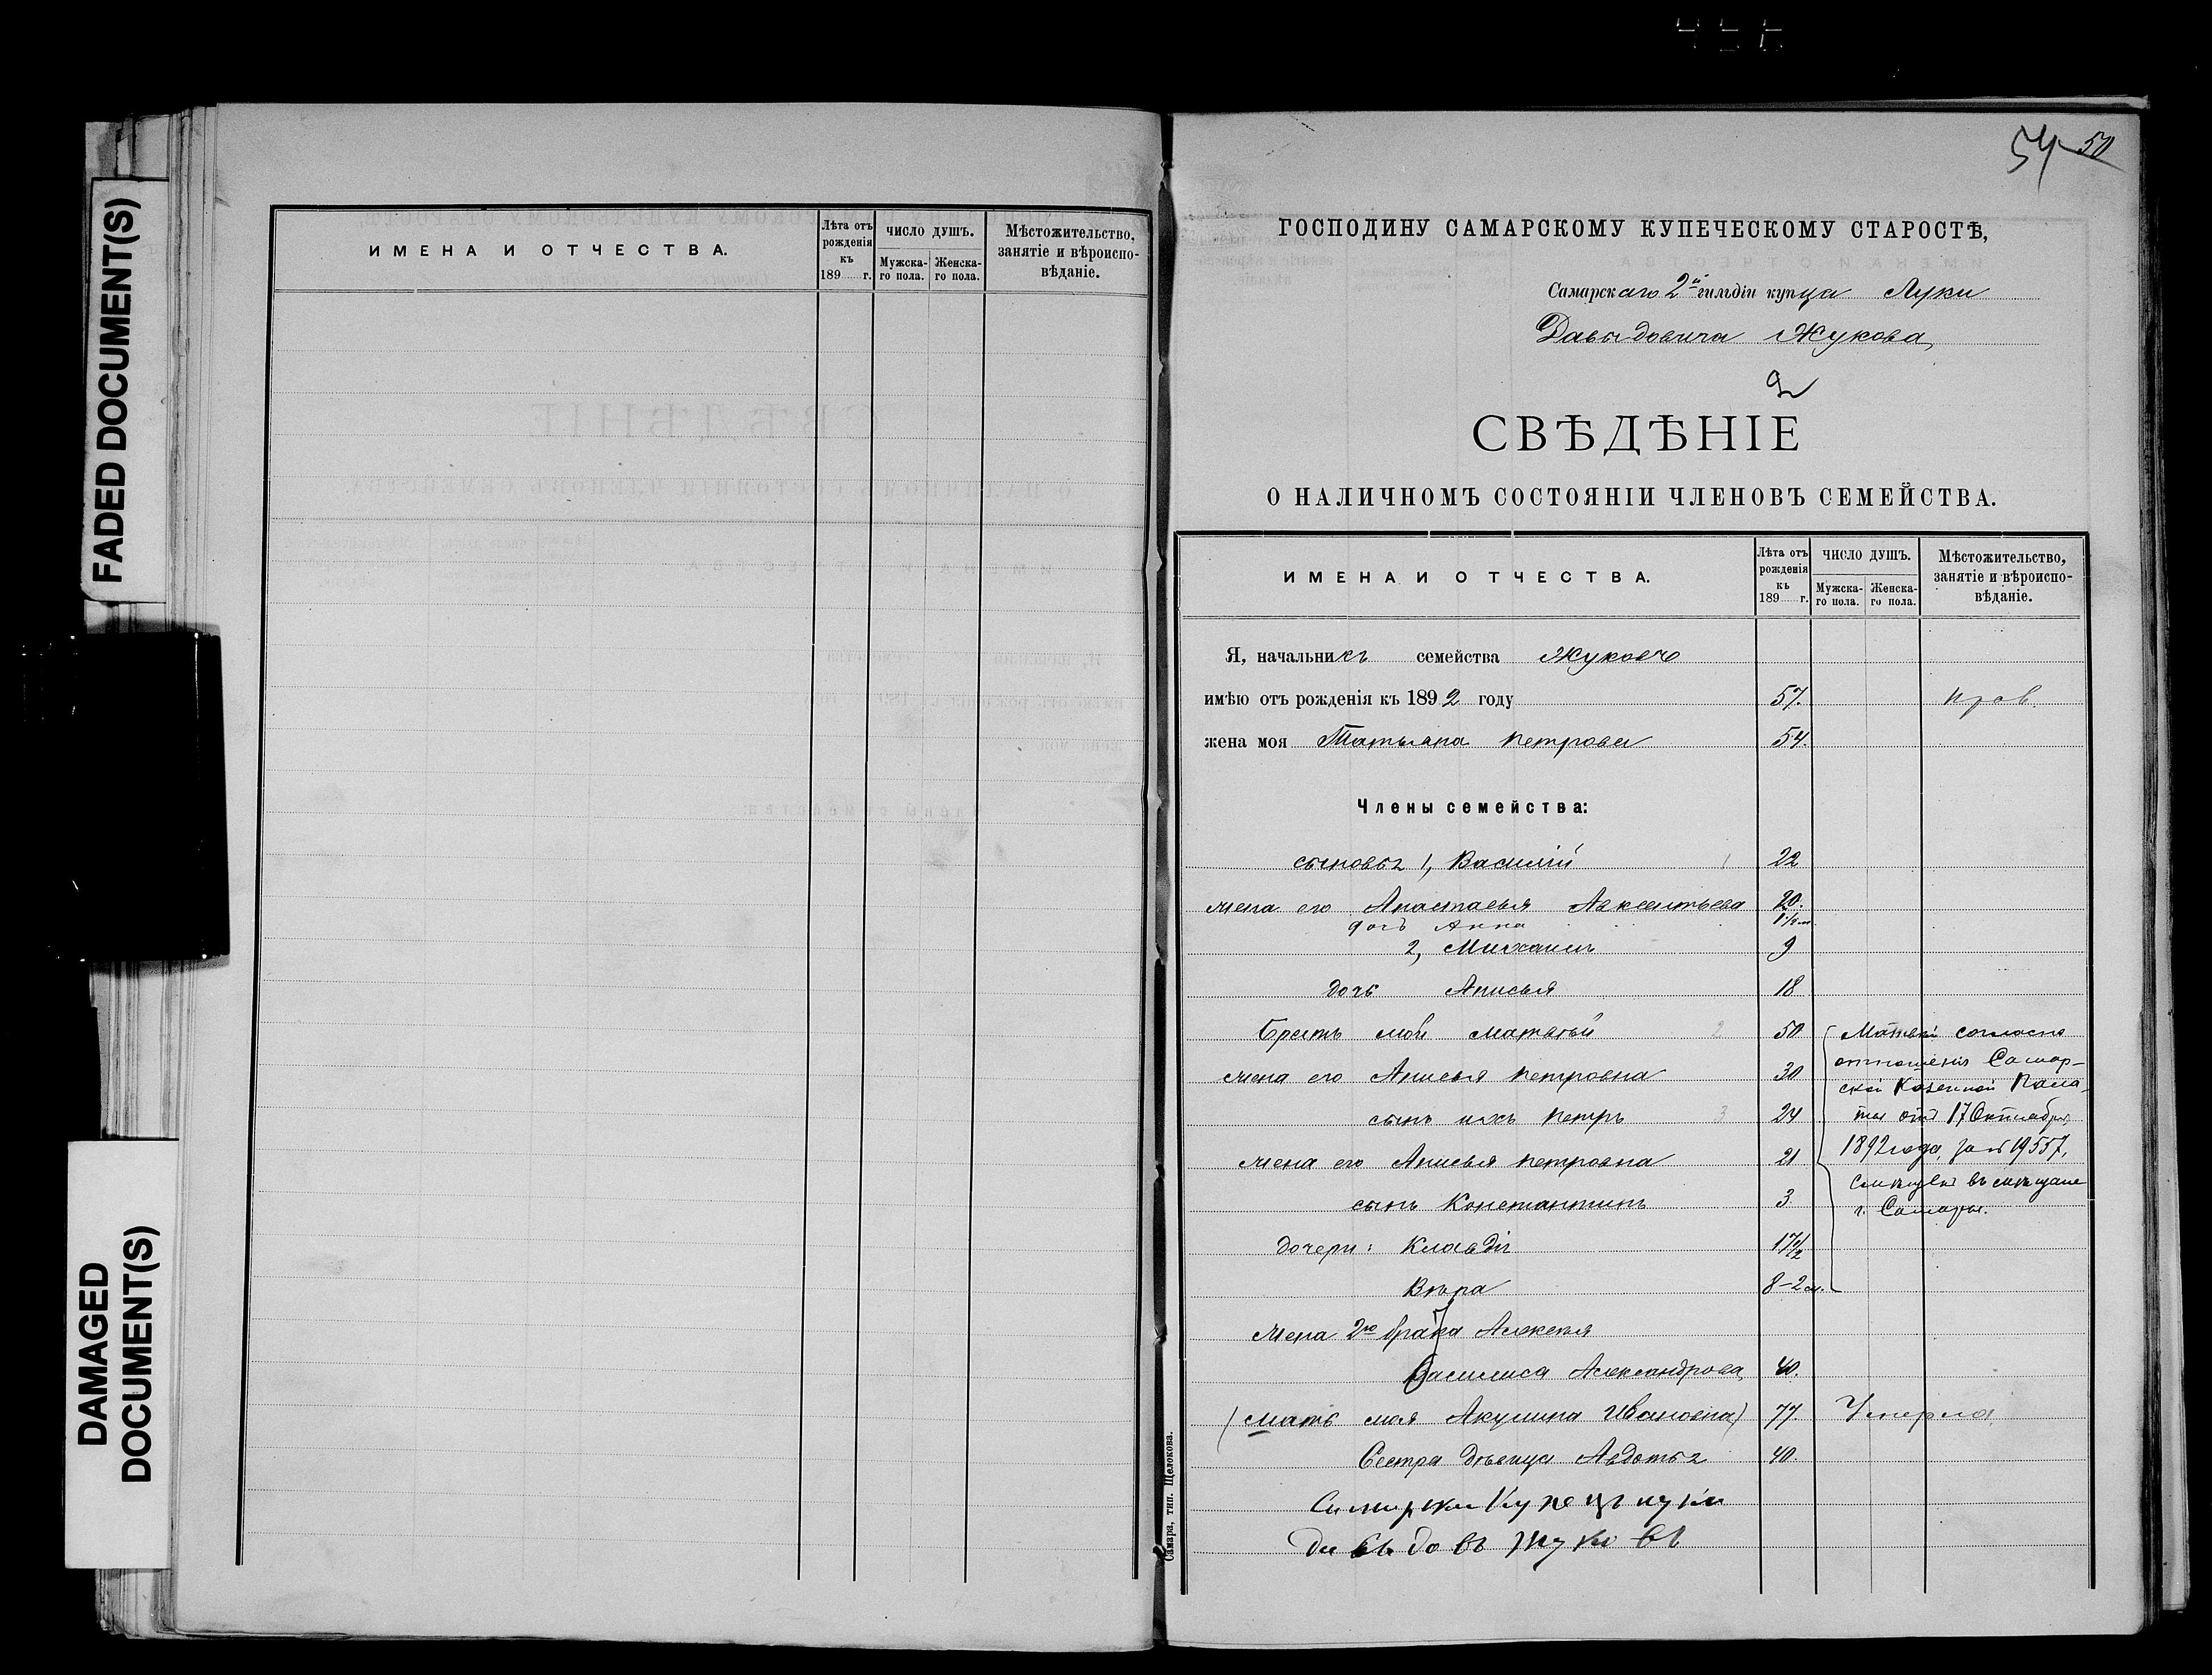 FADED DOCUMENT(S)
DAMAGED
DOCUMENT(S)
ИМЕНА И ОТЧЕСТВА.
Лѣта отъ рожденія къ 189 г.
ЧИСЛО ДУШЪ.
Мужска-го пола.
Женска-го пола.
Мѣстожительство, занятіе и вѣроиспо-вѣданіе.
54 50
ГОСПОДИНУ САМАРСКОМУ КУПЕЧЕСКОМУ СТАРОСТѢ,
Самарскаго 2й гильдіи купца Луки
Давыдовича Жукова
СВѢДѢНІЕ
О НАЛИЧНОМЪ СОСТОЯНІИ ЧЛЕНОВЪ СЕМЕЙСТВА.
ИМЕНА И ОТЧЕСТВА.
Лѣта отъ рожденія къ 189 г.
ЧИСЛО ДУШЪ.
Мужска-го пола.
Женска-го пола.
Мѣстожительство, занятіе и вѣроиспо-вѣданіе.
Я, начальникъ семейства Жуковъ
имѣю отъ рожденія къ 1892 году 57. прав.
жена моя Татьяна Петрова 54.
Члены семейства:
сыновья 1, Василій 1 22
жена его Анастасья Авксентьева 20.
дочь Анна
2, Михаилъ 9
дочь Анисья 18
братъ мой Матвѣй 2 50
жена его Анисья Петровна 30
сынъ ихъ Петръ 3 24
жена его Анисья Петровна 21
сынъ Константинъ 3
дочери: Клавдія 17 1/2
Вѣра 8-2 м.
Матвѣй согласно
отношенія Самар-
ской Казенной Пала-
ты отъ 17 Октября
1892 года, за № 19557,
въ мѣщане
г. Самары.
жена 2го брака Алексѣя
Василиса Александрова 40.
(мать моя Акулина Ивановна) 77. Умерла.
Сестра дѣвица Авдотья 40.
Самарски Купецъ луки
Давыдовъ Жуковъ
Самара, тип. Щелокова.